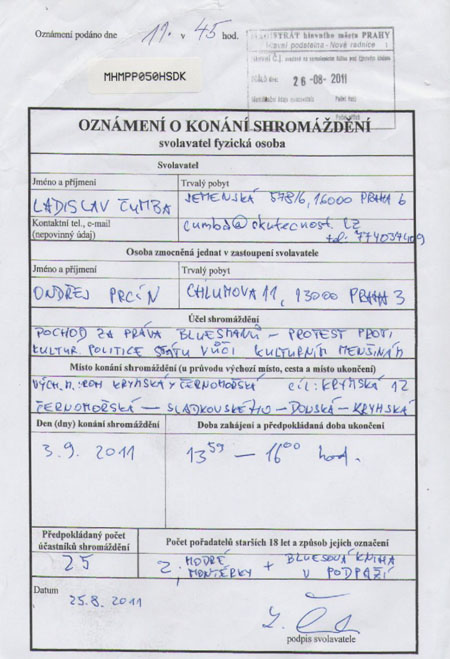 Oznámení podáno dne 11. v 45 hod.
MAGISTRÁT hlavního města PRAHY
Hlavní podatelna - Nové radnice
26-08-2011
MHMPP050HSDK
OZNÁMENÍ O KONÁNÍ SHROMÁŽDĚNÍ
svolavatel fyzická osoba
Svolavatel
Jméno a příjmení Trvalý pobyt
LADISLAV ČUMBA JEMENSKÁ 578/6, 16000 PRAHA 6
Kontaktní tel., e-mail
(nepovinný údaj) cumba@skutecnost.cz
tel: 774037409
Osoba zmocněná jednat v zastoupení svolavatele
Jméno a příjmení Trvalý pobyt
ONDŘEJ CHLUMOVA 11, 13000 PRAHA 3
Účel shromáždění
POCHOD ZA PRÁVA BLUESMANŮ – PROTEST PROTI
KULTUR. POLITICE STÁTU VŮČI KULTURNÍM MENŠINÁM
Místo konání shromáždění (u průvodu výchozí místo, cesta a místo ukončení)
VÝCH. M.: ROH KRYMSKÁ X ČERNOMOŘSKÁ cíl: KRYMSKÁ 12
ČERNOMOŘSKÁ – SLADKOVSKÉHO – DONSKÁ – KRYMSKÁ
Den (dny) konání shromáždění Doba zahájení a předpokládaná doba ukončení
3.9. 2011 13 59 – 16 00 hod.
Předpokládaný počet
účastníků shromáždění Počet pořadatelů starších 18 let a způsob jejich označení
25 2, MODRÉ MONTÉRKY + BLUESOVÁ KNIHA V PODPAŽÍ
Datum
25.8. 2011
podpis svolavatele